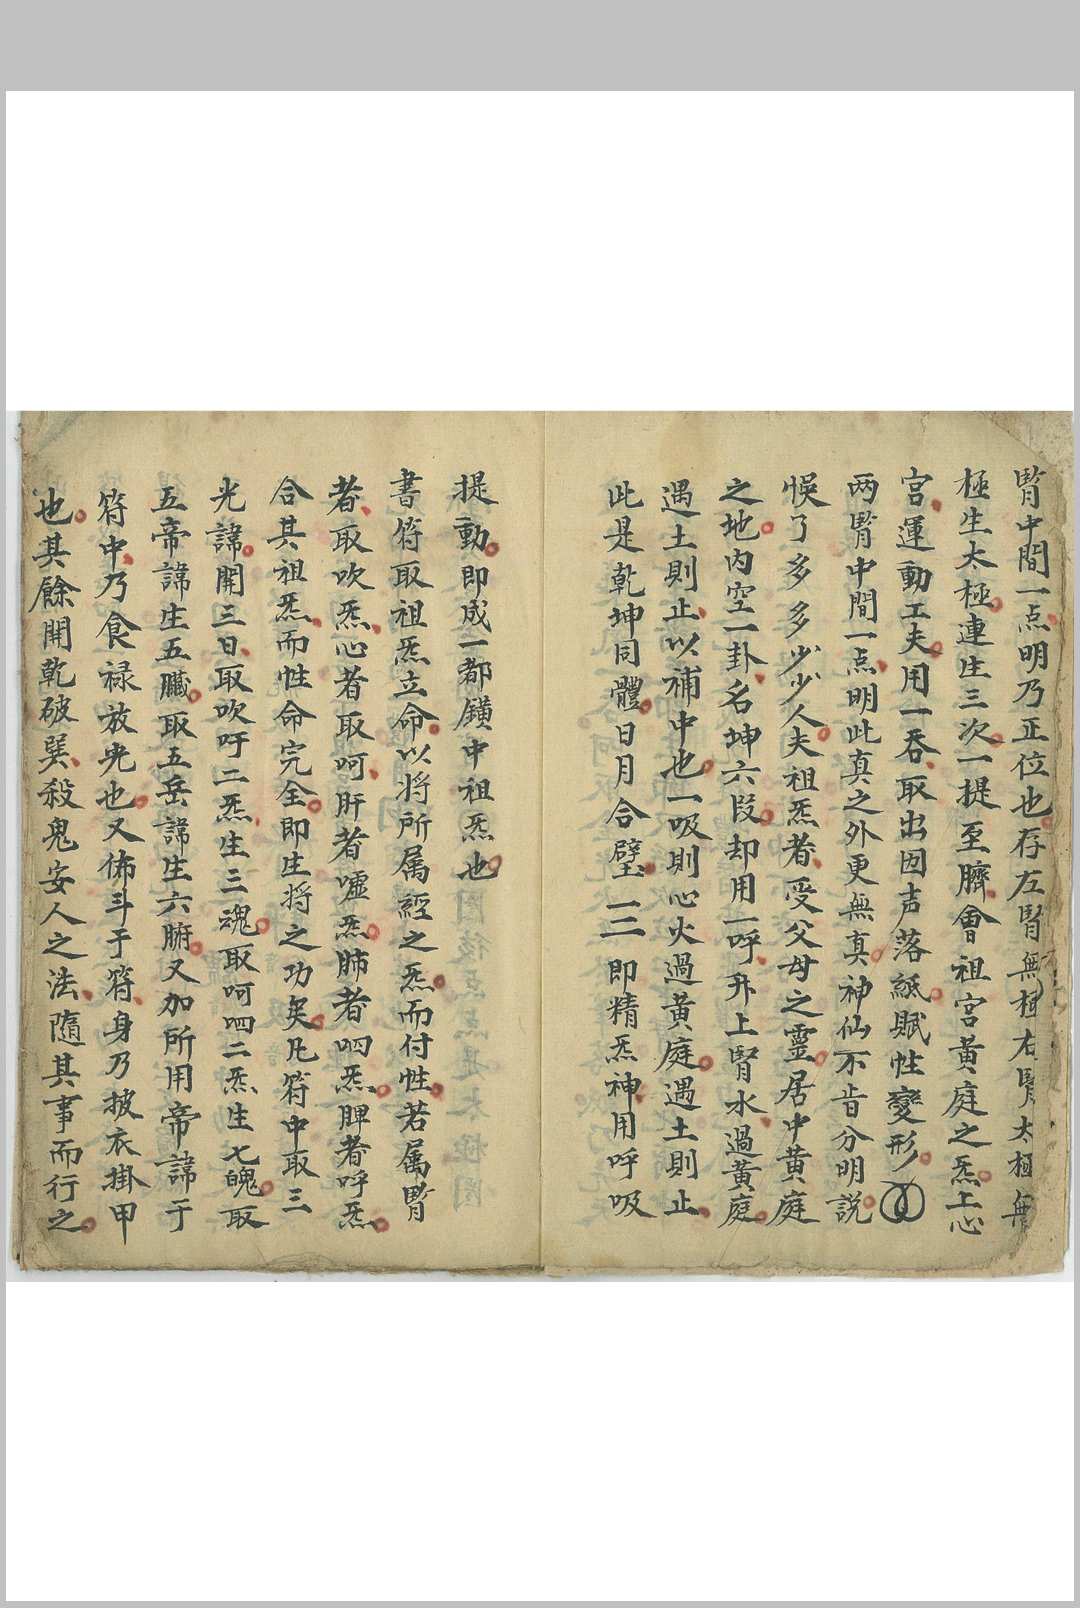 腎中間一点明乃正位也存左腎無極右腎太極無
極生太極連生三次一提至臍會祖宮黃庭之炁上心
宮運動工夫用一吞取出因声落紙賦性變形
两腎中間一点明此真之外更無真神仙不肯分明説
悮了多多少少人夫祖炁者受父母之靈居中黄庭
之地内空一卦名坤六段却用一呼升上腎水過黄庭
遇土則止以補中也一吸則心火過黄庭遇土則止
此是乾坤同體日月合璧三即精炁神用呼吸
提動即成一都鐄中祖炁也
書符取祖炁立命以将所属經之炁而付性若属腎
者取吹炁心者取呵肝者嘘炁肺者呬炁脾者呼炁
合其祖炁而性命完全即生将之功矣凡符中取三
光諱開三日取吹吁二炁生三魂取呵呬二炁生七魄取
五帝諱生五臟取五岳諱生六腑又加所用帝諱于
符中乃食禄放光也又佈斗于符身乃披衣掛甲
也其餘開乾破巽殺鬼安人之法隨其事而行之